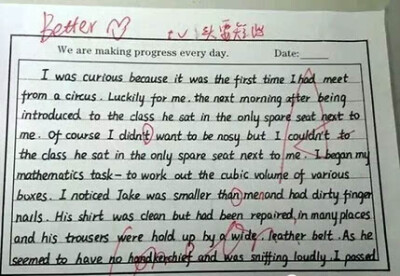 Better
We are making progress every day. Date:
I was curious because it was the first time I had meet
from a circus. Luckily for me, the next morning after being
introduced to the class he sat in the only spare seat next to
me. Of course I didn't want to be nosy but I couldn't to
the class he sat in the only spare seat next to me. I began my
mathematics task- to work out the cubic volume of various
boxes. I noticed Jake was smaller than men and had dirty finger
nails. His shirt was clean but had been repaired, in many places
and his trousers were hold up by a wide leather belt. As he
seemed to have no handkerchief and was sniffing loudly, I passed